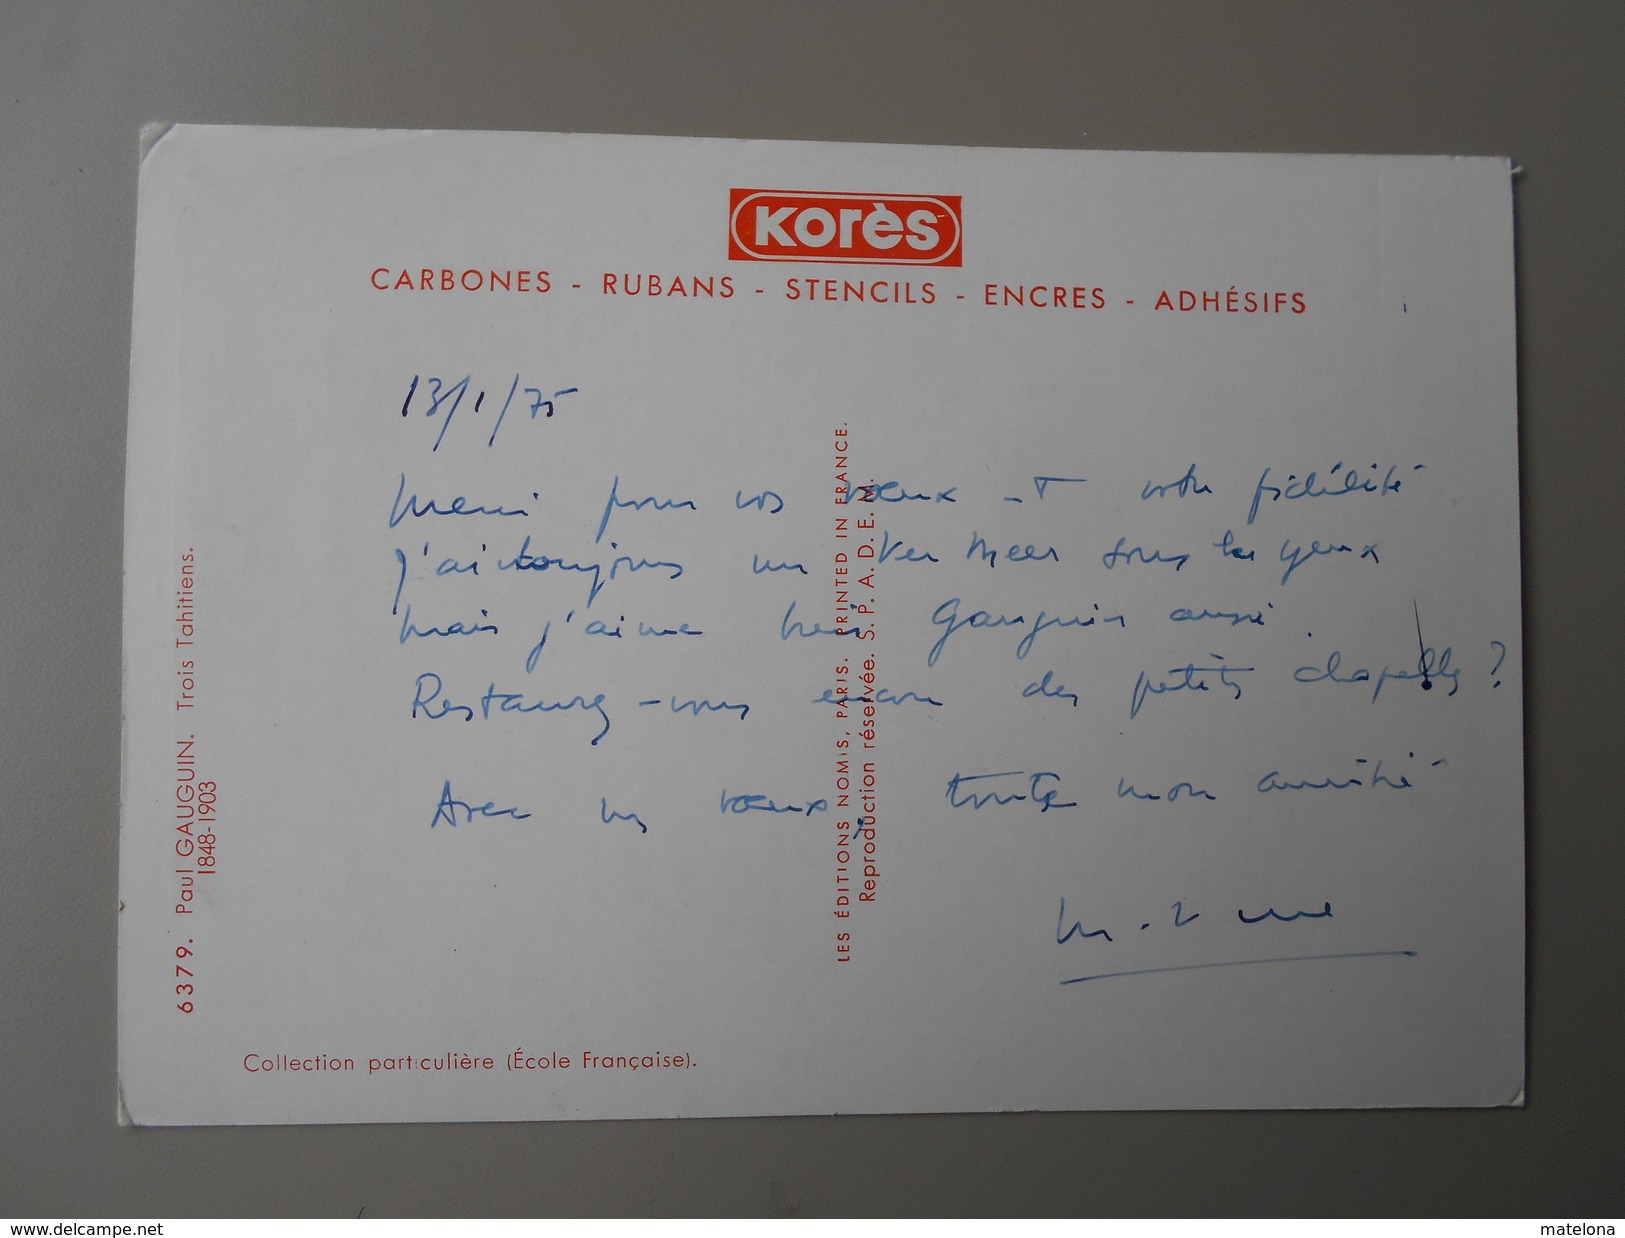 Korès
CARBONES - RUBANS - STENCILS - ENCRES - ADHÉSIFS
13/1/75
Merci pour vos vœux et votre fidélité
j'ai toujours un Ver Meer sous les yeux
mais j'aime bien Gauguin aussi.
Restaurez-vous encore des petites chapelles ?
Avec mes vœux, toute mon amitié
6379. Paul GAUGUIN. Trois Tahitiens.
1848-1903
LES ÉDITIONS NOMIS, PARIS. PRINTED IN FRANCE.
Reproduction réservée. S.P.A.D.E.M.
Collection particulière (École Française).
delcampe.net
matelona